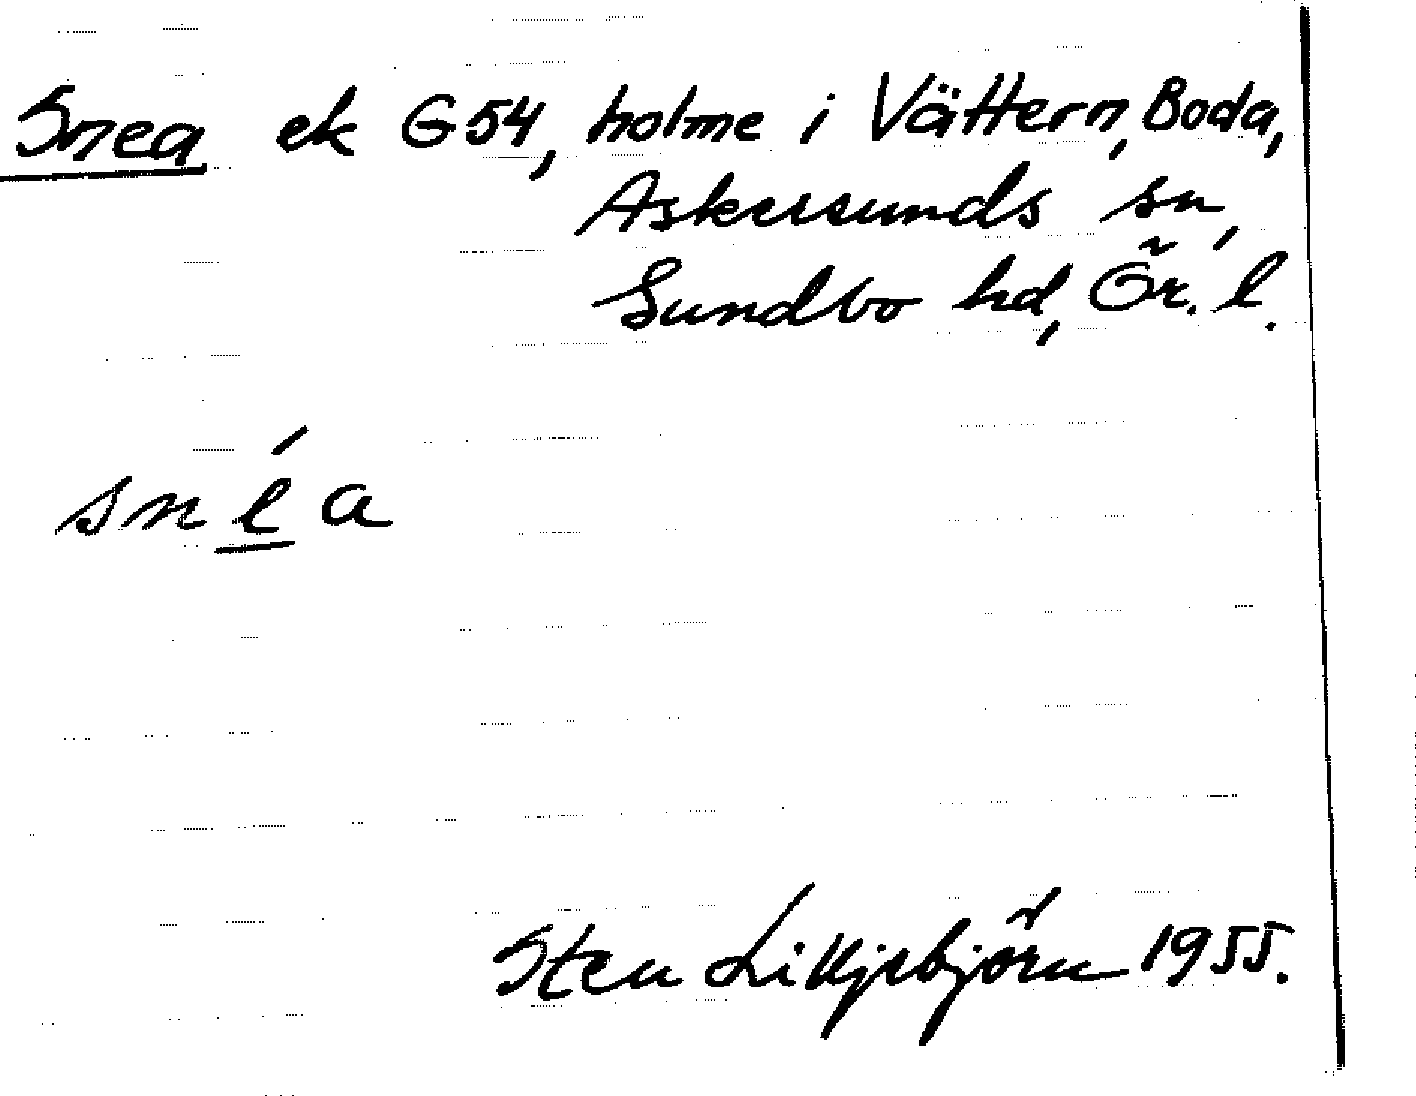 Snea ek G54, holme i Vättern, Boda,
Askersunds sn,
Sundbo hd, Ör. l.
snéa
Sten Liljebjörn 1955.